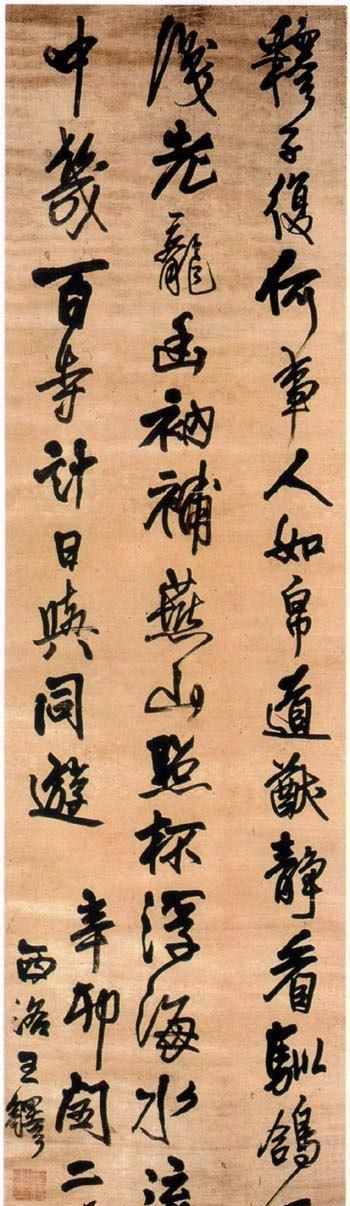 釋子復何事人如帛道猷靜看馴鴿
老龍幽衲補燕山杯浮海水流
中幾百寺計日與同遊 辛卯閏二
西洛王鐸